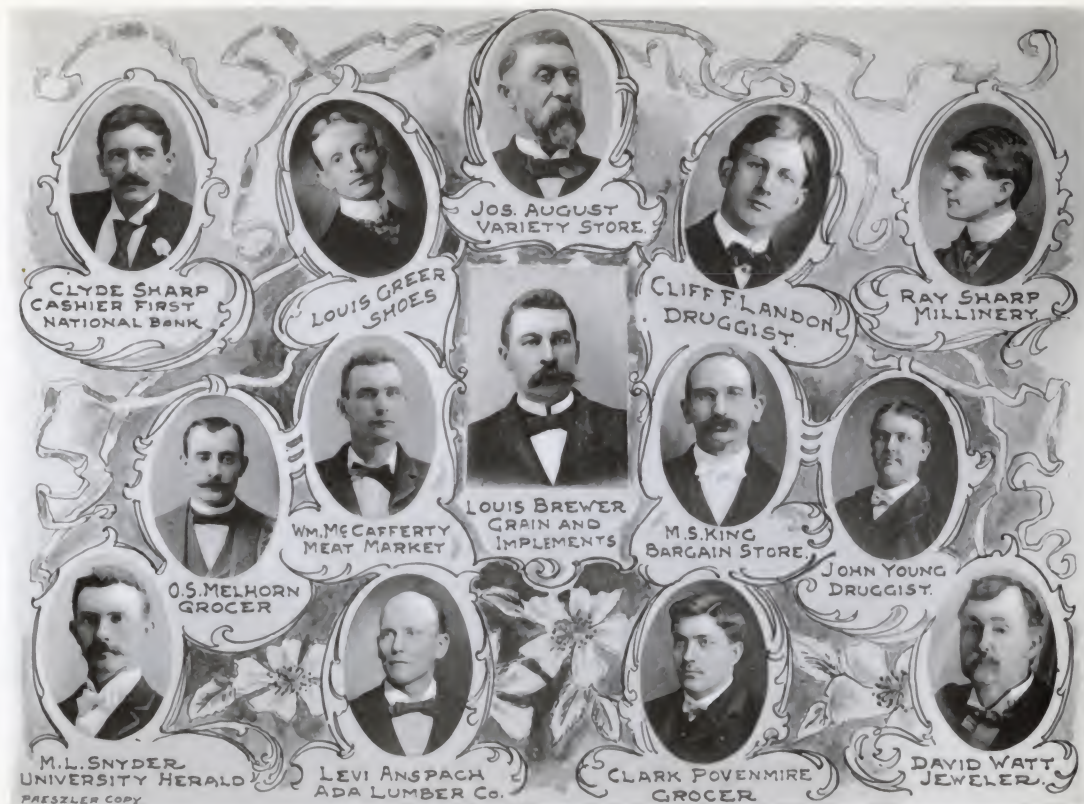 JOS. AUGUST
VARIETY STORE.
CLYDE SHARP
CASHIER FIRST
NATIONAL BANK
LOUIS GREER
SHOES
CLIFF F. LANDON
DRUGGIST.
RAY SHARP
MILLINERY.
O.S. MELHORN
GROCER
WM. MCCAFFERTY
MEAT MARKET
LOUIS BREWER
GRAIN AND
IMPLEMENTS
M.S. KING
BARGAIN STORE.
JOHN YOUNG
DRUGGIST.
M.L. SNYDER
UNIVERSITY HERALD
LEVI ANSPACH
ADA LUMBER CO.
CLARK POVENMIRE
GROCER
DAVID WATT
JEWELER.
PRESZLER COPY